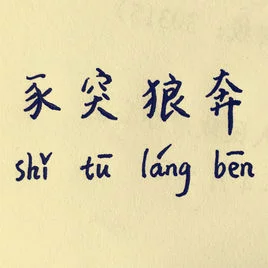 豕突狼奔
shǐ tū láng bēn